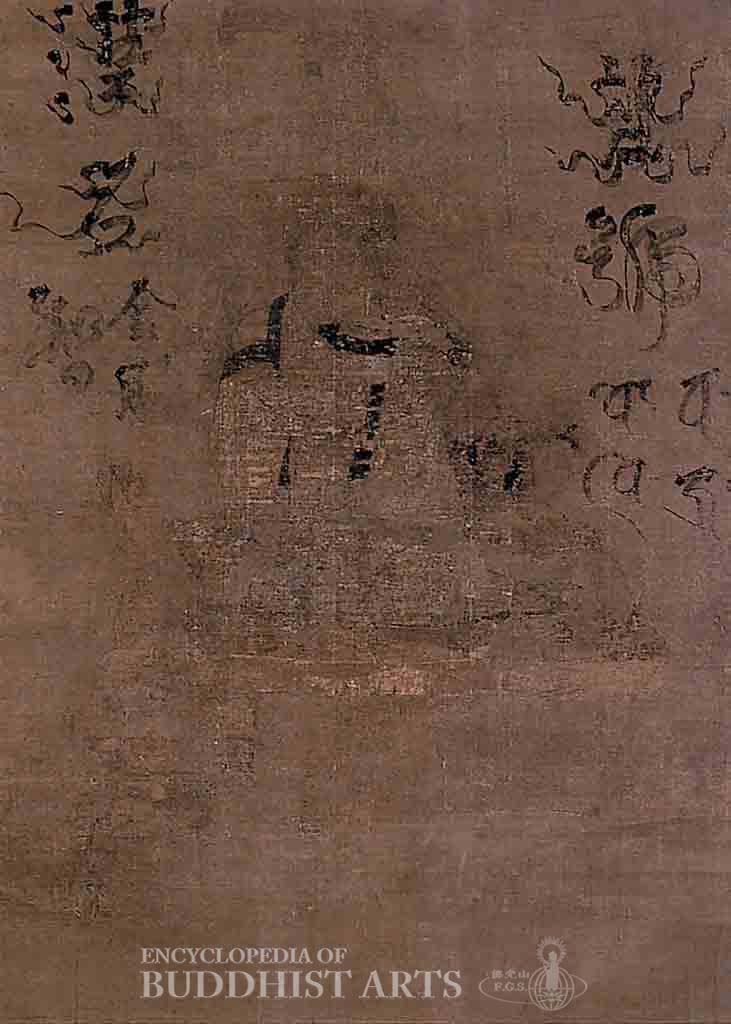 梵號
漢名
金剛
智
ENCYCLOPEDIA OF
BUDDHIST ARTS
佛光山
F.G.S.